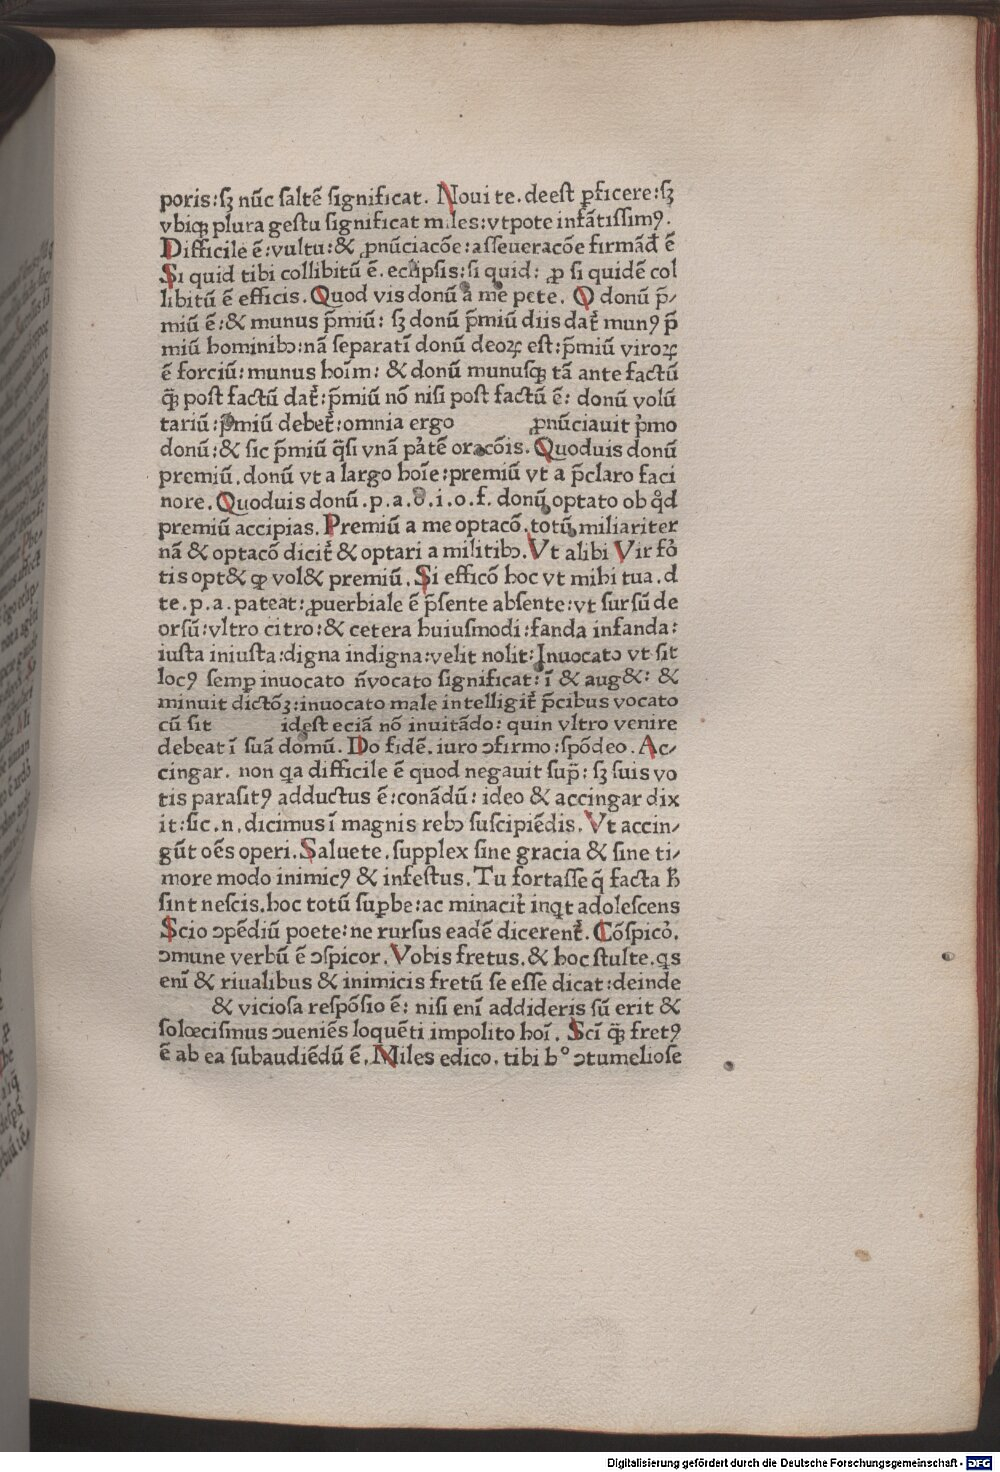 poris:sꝫ nūc saltē significat. Noui te. deest ꝑficere:sꝫ
vbiqꝫ plura gestu significat miles:vtpote infātissimꝰ.
Difficile ē:vultu:& ꝓnūciacōe:asseueracōe firmād̄ ē
Si quid tibi collibitū ē. eclipsis:si quid: ꝓ si quidē col
libitū ē efficis. Quod vis donū a me pete. Q donū p̄-
miū ē:& munus p̄miū: sꝫ donū p̄miū diis dat᷑ munꝰ p̄
miū hominibꝫ:nā separatī donū deoꝝ est:p̄miū viroꝝ
ē forciū:munus hoīm: & donū munusqꝫ tā ante factū
qꝫ̄ post factū dat᷑:p̄miū nō nisi post factū ē: donū volū
tariū:p̄miū debet᷑:omnia ergo ꝓnūciauit pͥmo
donū:& sic p̄miū q̄si vnā pᵃtē oracōis. Quoduis donū
premiū. donū vt a largo hoīe:premiū vt a p̄claro faci
nore. Quoduis donū.p.a.d.i.o.f. donū optato ob qͥd
premiū accipias. Premiū a me optacō.totū miliariter
nā & optacō dicit᷑ & optari a militibꝫ. Vt alibi Vir foͬ
tis opt& qꝫ vol& premiū. Si efficō hoc vt mihi tua.d
te.p.a.pateat:ꝓuerbiale ē p̄sente absente:vt sursū de
orsū:vltro citro:& cetera huiusmodi:fanda infanda:
iusta iniusta:digna indigna:velit nolit:Inuocatꝰ vt sit
locꝰ semꝑ inuocato n̄vocato significat: ī & aug&: &
minuit dictōꝫ:inuocato male intelligit᷑ p̄cibus vocato
cū sit idest eciā nō inuitādo: quin vltro venire
debeat ī suā domū. Do fidē. iuro ↄfirmo:spōdeo. Ac-
cingar. non qa difficile ē quod negauit sup̄: sꝫ suis vo
tis parasitꝰ adductus ē:conādū: ideo & accingar dix
it:sic.n.dicimus ī magnis rebꝫ suscipiēdis. Vt accin-
gūt oēs operi. Saluete. supplex sine gracia & sine ti-
more modo inimicꝰ & infestus. Tu fortasse q̄ facta ħ
sint nescis.hoc totū suꝑbe:ac minacit᷑ inqt adolescens
Scio ↄpēdiū poete:ne rursus eadē dicerent᷑. Cōspicoͬ.
ↄmune verbū ē ↄspicor. Vobis fretus. & hoc stulte.qs
enī & riualibus & inimicis fretū se esse dicat:deinde
& viciosa respōsio ē: nisi enī addideris sū erit &
solœcismus ↄueniēs loquēti impolito hoī. Scī qꝫ̄ fretꝰ
ē ab ea subaudiēdū ē. Miles edico. tibi h° ↄtumeliose
Digitalisierung gefördert durch die Deutsche Forschungsgemeinschaft - DFG